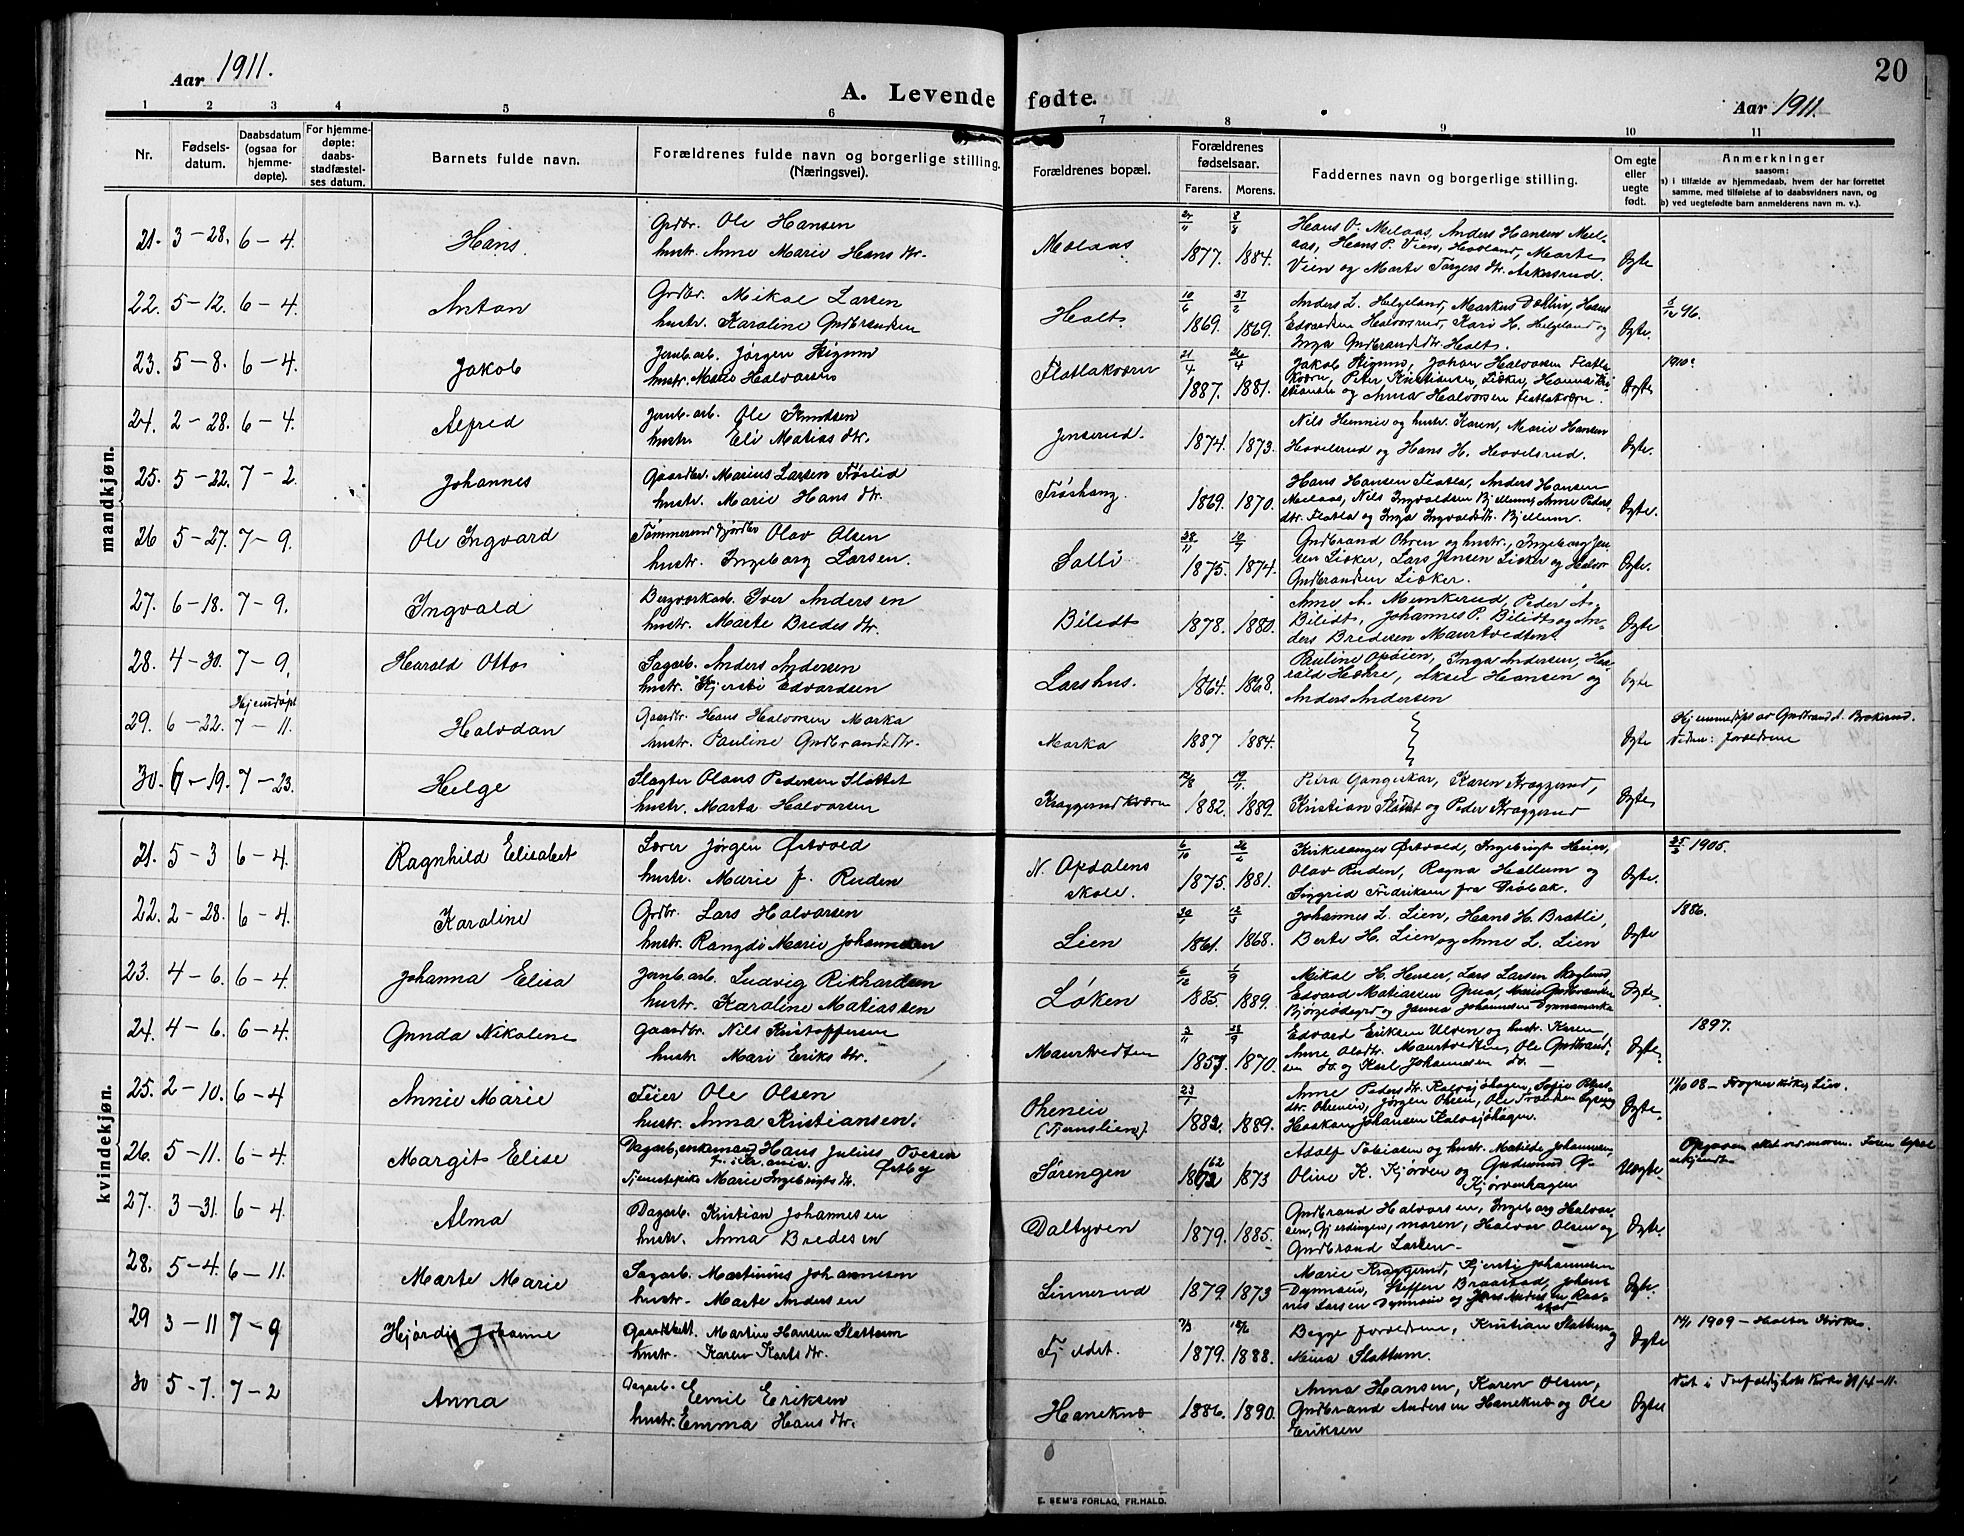 Aar 1911.
A. Levende fødte.
20
Aar 1911.
1 2 3 4 5 6 7 8 9 10 11
Nr.
Fødsels-
datum.
Daabsdatum
(ogsaa for
hjemme-
døpte).
For hjemme-
døpte:
daabs-
stadfæstel-
ses datum.
Barnets fulde navn.
Forældrenes fulde navn og borgerlige stilling.
(Næringsvei).
Forældrenes bopæl.
Forældrenes
fødselsaar.
Farens. Morens.
Faddernes navn og borgerlige stilling.
Om egte
eller
uegte
født.
Anmerkninger
saasom:
a) i tilfælde av hjemmedaab, hvem der har forrettet
samme, med tilføielse af to daabsvidners navn, og
b) ved uegtefødte barn anmelderens navn m. v.).
mandkjøn.
21. 3-28. 6-4. Hans. Grdbr. Ole Hansen
hustr. Anne Marie Hans dtr.
Melaas 1877. 1884. Hans O. Melaas, Anders Hansen Mel-
aas, Hans P. Vien, Hovland, Marte
Vien og Marte Torgers dtr. Askersrud.
Egte
22. 5-12. 6-4. Anton Grdbr. Mikal Larsen
hustr. Karoline Gudbrandsen
Holt. 1869. 1869. Anders L. Helgeland, Markus Dæhlin, Hans
Edvardsen Halvorsrud, Kari H. Helgeland og
Inga Gudbrandsdtr. Holt.
Egte.
23. 5-8. 6-4. Jakob Jernb.arb. Jørgen Rignni
hustr. Marie Halvorsen
Flatlakværn 1887. 1881. Jakob Johan Halvorsen Flatla-
kværn, Peter Kristiansen, Lieker, Hanna Kri
stiansen og Anna Halvorsen Flatlakværn.
Egte 1910.
24. 2-28. 6-4. Alfred Jernb.arb. Ole Knudsen
hustr. Eli Matias dtr.
Jenserud. 1874. 1873. Nils Hennie og hustr. Karen, Marie Hansen
Hovelsrud og Hans H. Hovelsrud.
Egte.
25. 5-22. 7-2. Johannes Gaardbr. Marius Larsen Føslid
hustr. Marie Hans dtr.
Frøshaug. 1869. 1870. Hans Hansen Flatla, Anders Hansen
Melaas, Nils Ingvaldsen Bjellum, Anne Peders
dtr. Flatla og Inga Ingvaldsdtr. Bjellum.
Egte.
26 5-27. 7-9. Ole Ingvard Olav Olsen
hustr. Ingeborg Larsen.
Solli 1875. 1874. Gudbrand Ohren og hustr., Ingeborg Jen
sen Lieker, Lars Jensen Lieker og Halvor
Gudbrandsen Lieker.
Egte.
27. 6-18. 7-9. Ingvald Bergverksarb. Iver Andersen
hustr. Marte Bredes dtr.
Bilidt 1878. 1880. Anne A. Munkerud, Peder A.
Bilidt, Johannes P. Bilidt og An-
ders Bredesen Maurtvedten.
Egte
28. 4-30. 7-9. Harald Otto Sagarb. Anders Andersen
hustr. Kjersti Edvardsen
Larshus. 1864. 1868. Pauline Opøien, Inga Andersen, Ha-
rald Hæhre, Aksel Hansen og
Anders Andersen
Egte
29. 6-22. Hjemdøpt 7-11. Halvdan Gaardbr. Hans Halvorsen Marka
hustr. Pauline Gudbrandsdtr.
Marka 1887 1884. Egte Hjemmedøpt av Gudbrand A. Brakerud.
Vidner: forældrene
30. 6-19. 7-23. Helge Slagter Olaus Pedersen Slattet
hustr. Marta Halvorsen
Kraggerudkværn 1882. 1889. Petra Gangeskar, Karen Kraggerud,
Kristian Slattet og Peder Kraggerud
Egte
kvindekjøn.
21. 5-3 6-4. Ragnhild Elisabet Lærer Jørgen Østvold
hustr. Marie J. Ruden
N. Opdalens
skole. 1875. 1881. Kirkesanger Østvold, Ingebrigt Heier,
Olav Ruden, Ragna Hallum og
Singrid Fredriksen fra Drøbak.
Egte. 1905.
22. 2-28. 6-4. Karoline Grdbr. Lars Halvorsen
hustr. Rangdi Marie Johannesen
Lien 1861. 1868. Johannes L. Lien, Hans H. Bratli,
Berte H. Lien og Anne L. Lien
Egte 1886.
23. 4-6. 6-4. Johanna Elisa Jernb.arb. Ludvig Rikhardsen
hustr. Karoline Matiassen
Løken 1885. 1889. Mikal H. Lars Larsen Skoglund
Edvard Matiassen Grua, Marie Gudbrandsen
Bjørgeødegrd og Janna Johannesen Dynnamarka
Egte.
24. 4-6. 6-4. Gunda Nikoline Gaardbr. Nils Kristoffersen
hustr Mari Eriks dtr.
Maurtvedten 1857 1870. Edvard Eriksen Ulven og hustr. Karen,
Anne Olsdtr. Maurtvedten, Ole Gudbrand-
sen do. og Karl Johannesen do.
Egte. 1897.
25. 2-10. 6-4 Annie Marie Feier Ole Olsen
hustr. Anna Kristiansen.
Oheneie
(Tjernslien). 1882. 1889. Anne Pedersdtr. Kalvsjøhagen, Sofie Peders-
dtr. Oheneie, Jørgen Ohren, Ole
Haakon Johansen Kalvsjøhagen.
Egte. 08 – Frogner kirke, Lier.
26. 5-11. 6-4. Margit Elise Dagarb. enkemand Hans Julius Ovesen
Østby
Tjenestepike Marie Ingebrigts dtr.
Sørengen 62 1873 Adolf Tobiasen og hustr. Matilde Johannesen,
Oline K. Kjørven og Gudmund
Kjørvenhagen
Uegte. Opgaven sket ved moren.
27. 3-31. 6-4. Alma Dagarb. Kristian Johannesen
hustr. Anna Bredesen
Daltyven 1879. 1885. Gudbrand Halvorsen, Ingeborg Halvor-
sen, Gjerdingen, moren, Halvor Olsen og
Gudbrand Larsen.
Egte.
28. 5-4. 6-11. Marte Marie Sagarb. Martinius Johannesen
hustr. Marte Andersen
Linnerud 1879. 1873 Marie Kraggerud, Kjersti Johannesen
Dynnaeie, Steffen Braastad, Johan
nes Larsen Dynnaeie og
Egte.
29 3-11 7-9 Hjørdis Johanne Martin Hansen Slattum
hustr. Karen Karls dtr.
Fjeldet. 1879. 1888. Begge forældrene, Kristian Slattum og
Mina Slattum.
Egte 1909 – Holter Kirke.
30 5-7. 7-2 Anna Dagarb. Emil Eriksen
hustr. Emma Hans dtr.
Hanekne 1886. 1890. Anna Hansen, Karen Olsen,
Gudbrand Andersen Hanekne og Ole
Eriksen
Egte Viet i Trefoldigheds Kirke 21/4-11.
E. SEM'S FORLAG, FR.HALD.